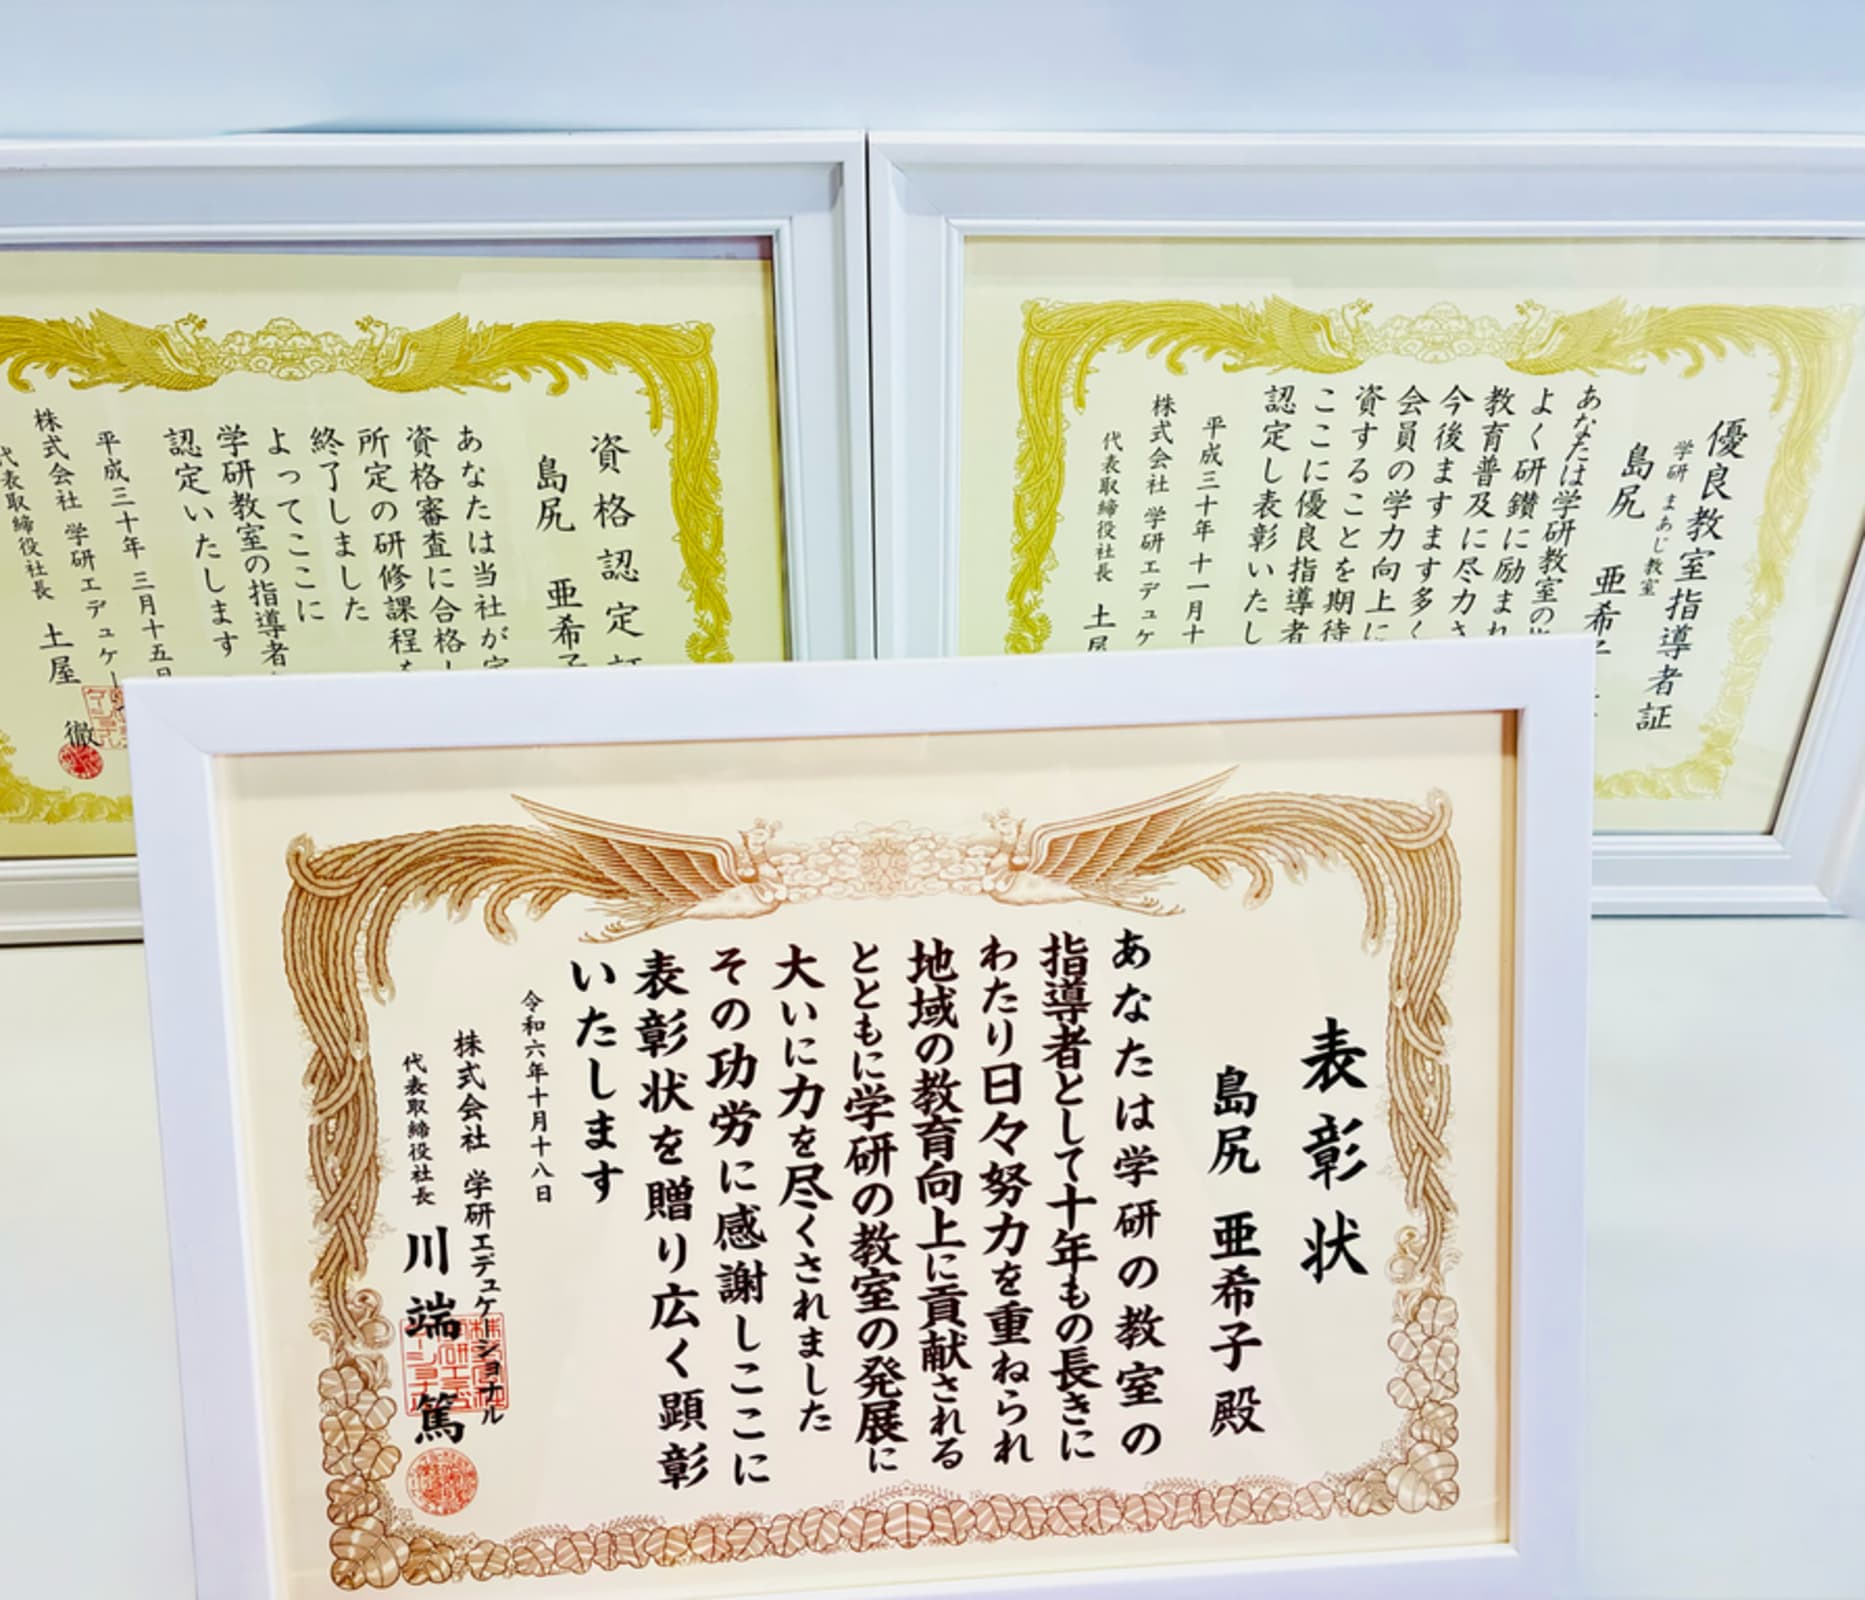 表彰状
島尻 亜希子 殿
あなたは学研の教室の
指導者として十年もの長きに
わたり日々努力を重ねられ
地域の教育向上に貢献される
とともに学研の教室の発展に
大いに力を尽くされました
その功労に感謝しここに
表彰状を贈り広く顕彰
いたします
令和六年十月十八日
株式会社 学研エデュケーショナル
代表取締役社長 川端 篤
優良教室指導者証
学研 まあじ教室
島尻 亜希子
あなたは学研教室の
よく研鑽に励まれ
教育普及に尽力さ
今後ますます多く
会員の学力向上に
資することを期待
ここに優良指導者
認定し表彰いたし
平成三十年十一月十
株式会社 学研エデュケ
代表取締役社長 土屋
資格認定証
島尻 亜希子
あなたは当社が定
資格審査に合格し
所定の研修課程を
終了しました
よってここに
学研教室の指導者
認定いたします
平成三十年三月十五日
株式会社 学研エデュケー
代表取締役社長 土屋 徹